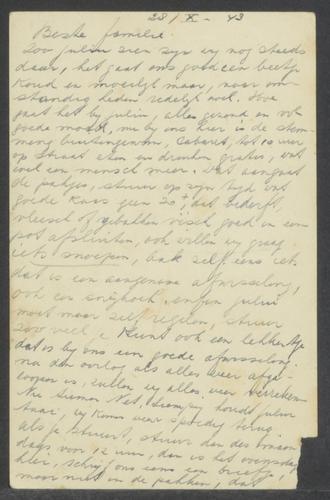 28/X - 43
Beste familie.
Zoo jullie zien zijn wij nog steeds
daar, het gaat ons goed een beetje
koud en moeilijk maar, naar om-
standig heden redelijk wel. Hoe
gaat het bij jullie, alles gezond en vol
goede moed, nu bij ons hier is de stem-
ming buitengewoon, Cabaret, tot 10 uur
op straat eten en drinken gratis, wat
wil een mensch meer. Wat aangaat
de pakjes, stuur op zijn tijd wat
goede kaas geen 20+, dat bederft,
vleesch of gebakken visch goed in een
pot afsluiten, ook willen wij graag
iets snoepen, bak zelf eens iets
dat is een aangename afwisseling,
ook een snijkoek. enfin jullie
moet maar zelf regelen, stuur
zoo veel je kunt ook een lekker
dat is bij ons een goede afwisseling.
na den oorlog als alles weer afge-
loopen is, zullen wij alles weer verreken-
Nu houdt jullie
taai, wij komen weer spoedig terug.
als je stuurt, stuur dan des maan-
dags voor 12 uur, dan is het woensdag
hier, schrijf ons eens een briefje,
maar niet in de pakken, dat